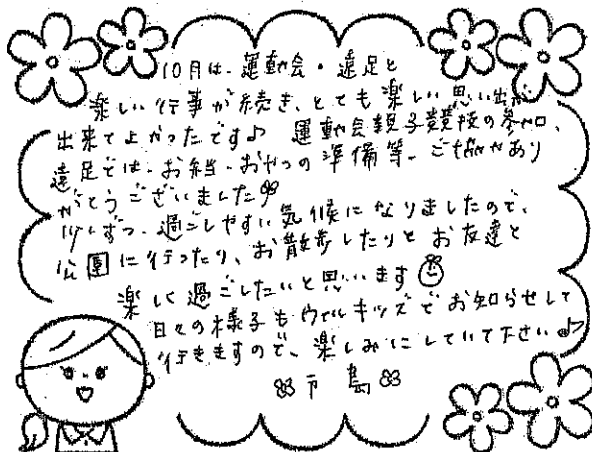 10月は、運動会・遠足と
楽しい行事が続き、とても楽しい思い出が
出来てよかったです♪ 運動会親子競技の参加、
遠足では、お弁当、おやつの準備等、ご協力あり
がとうございました
少しずつ、過ごしやすい気候になりましたので、
公園に行ったり、お散歩したりとお友達と
楽しく過ごしたいと思います
日々の様子もウェルキッズでお知らせして
行きますので、楽しみにしていて下さい♪
市島